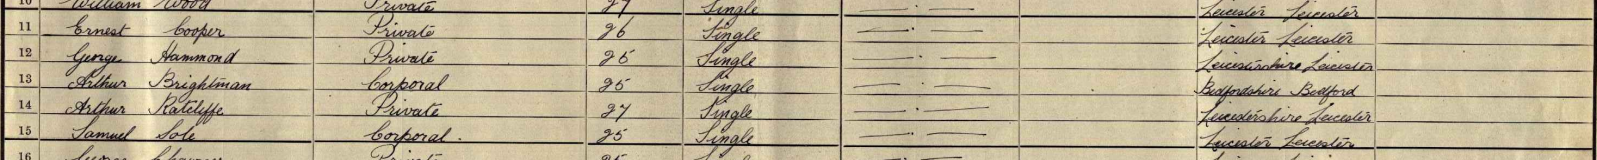 10 William Wood Private 27 Single — . — Leicester Leicester
11 Ernest Cooper Private 26 Single — . — Leicester Leicester
12 George Hammond Private 25 Single — . — Leicestershire Leicester
13 Arthur Brightman Corporal 25 Single — . — Bedfordshire Bedford
14 Arthur Ratcliffe Private 27 Single — . — Leicestershire Leicester
15 Samuel Sole Corporal. 25 Single — . — Leicester Leicester
16